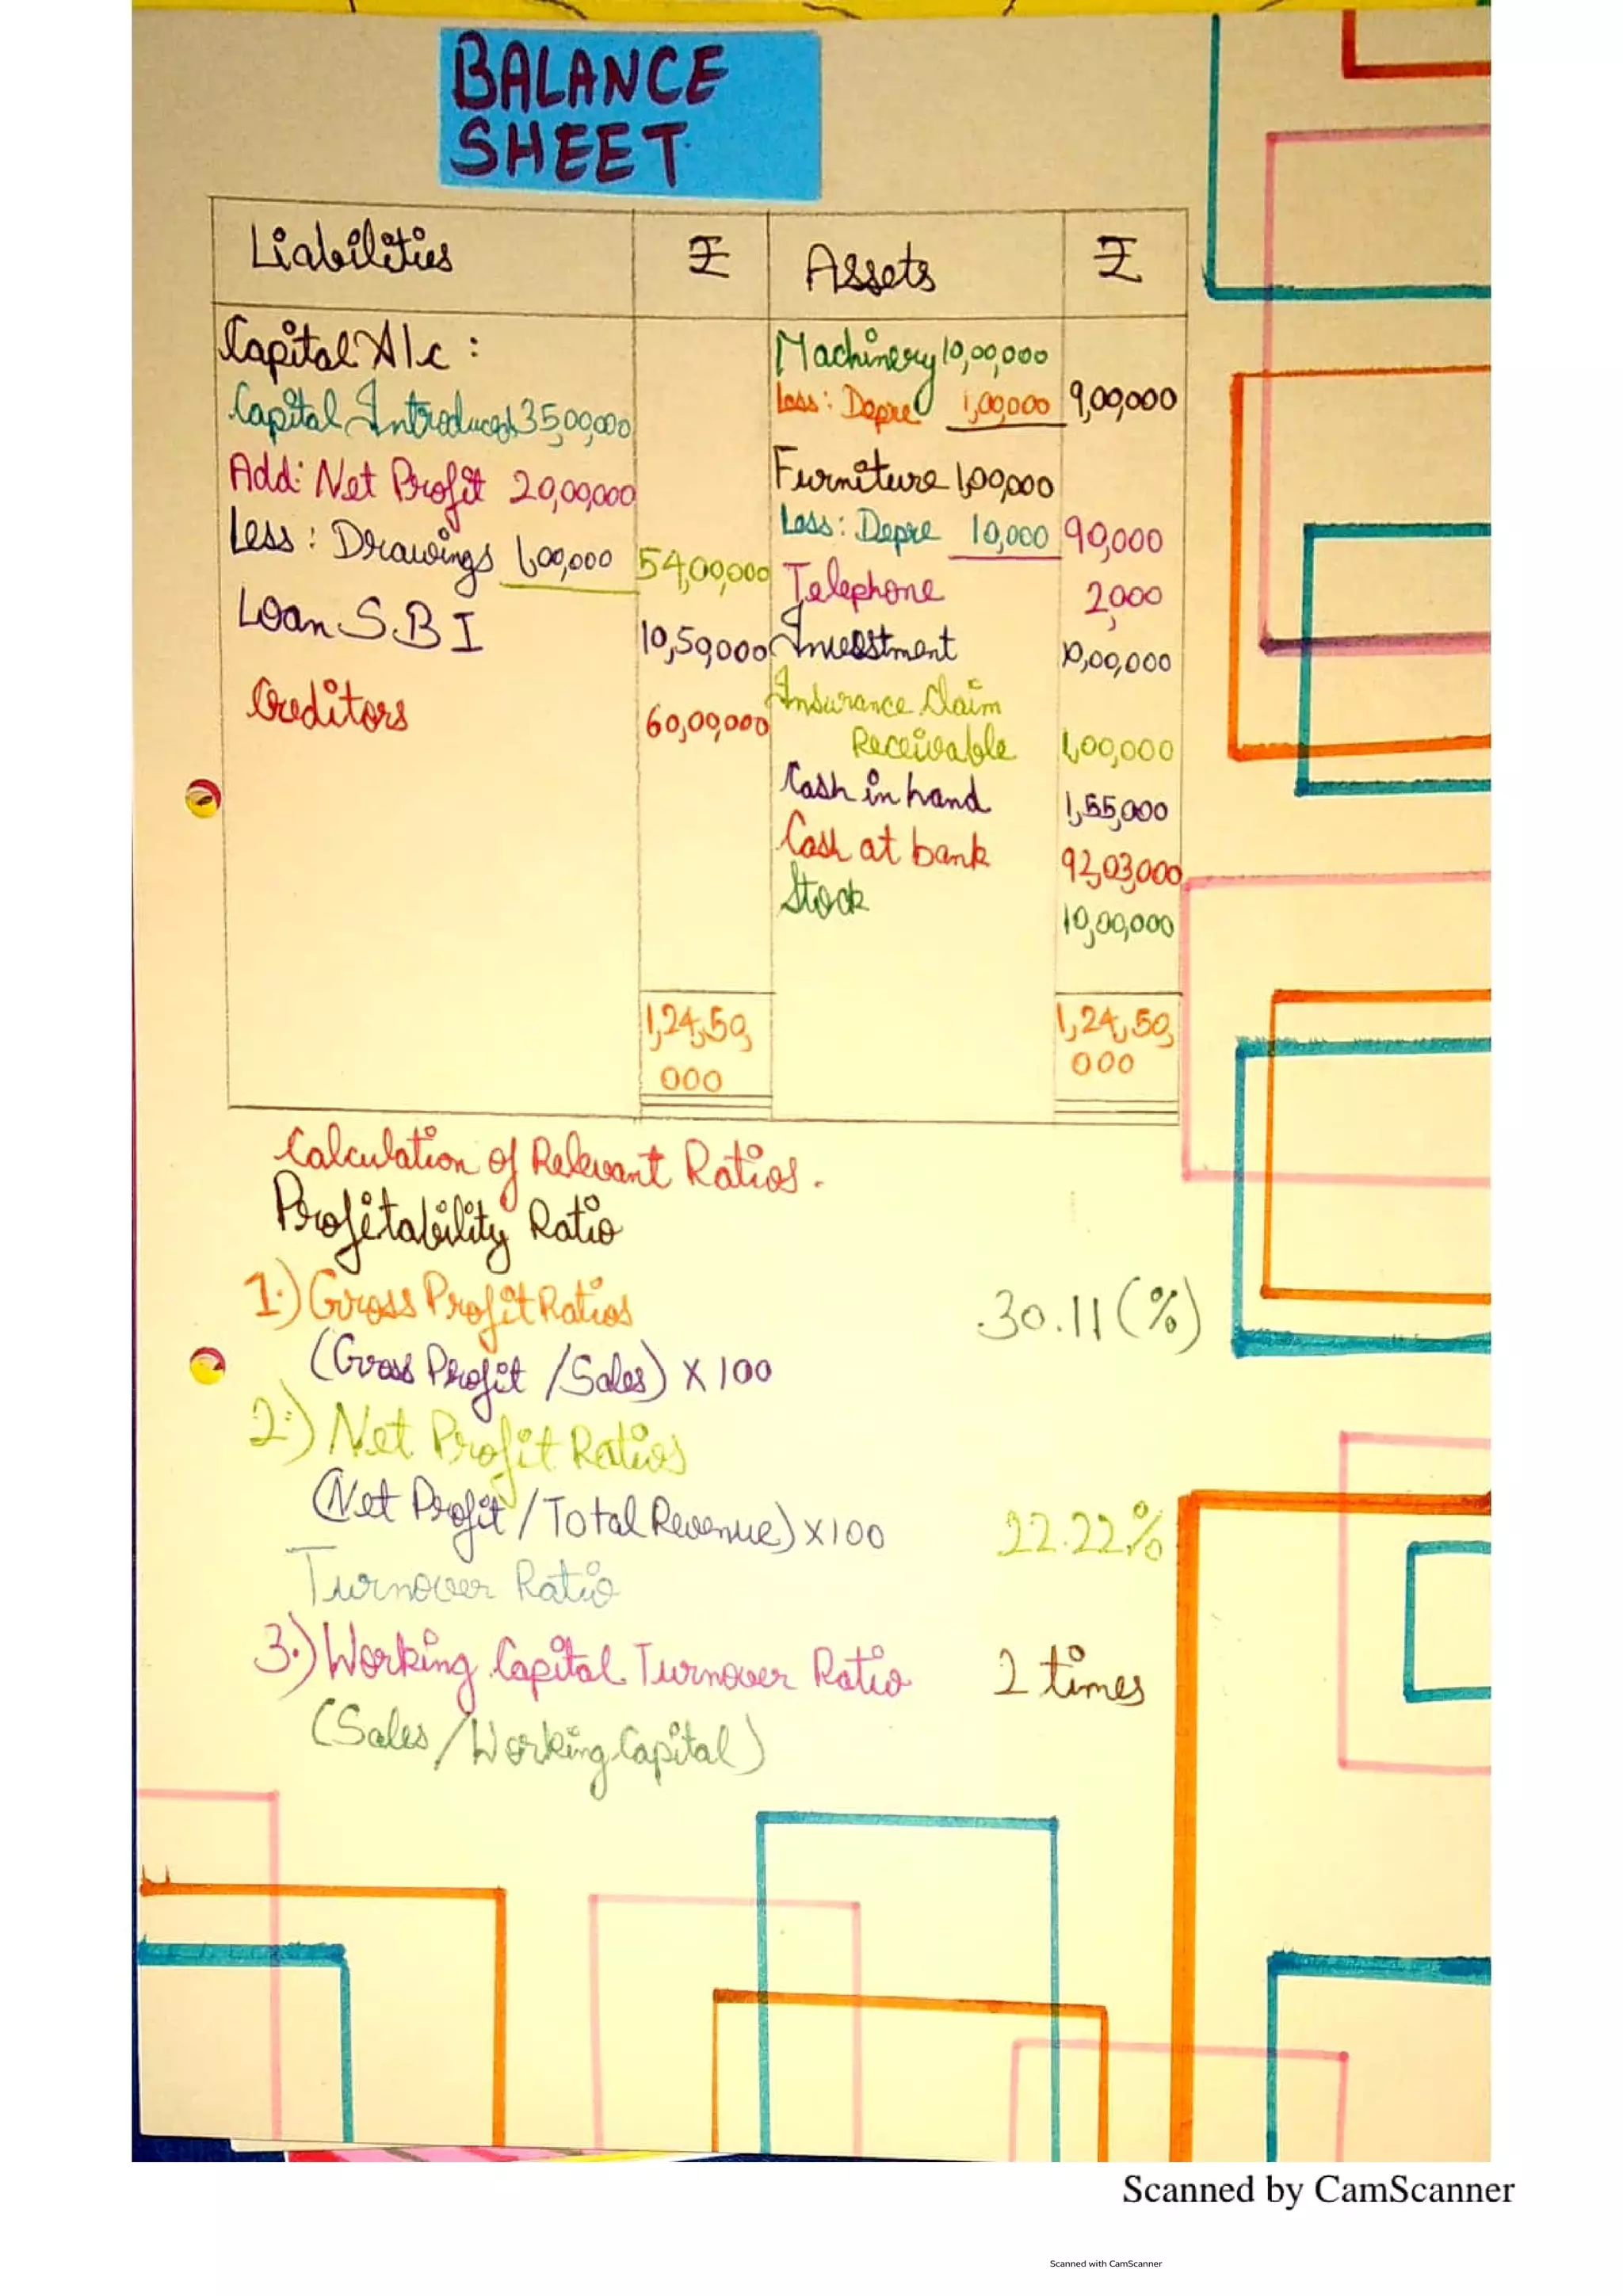 BALANCE
SHEET
Liabilities ₹ Assets ₹
Capital A/c : Machinery 10,00,000
Less: Depre 1,00,000 9,00,000
Capital Introduced 35,00,000
Furniture 1,00,000
Add: Net Profit 20,00,000
Less: Depre 10,000 90,000
Less: Drawings 1,00,000 54,00,000
Telephone 2,000
Loan SBI 10,50,000 Investment 10,00,000
Creditors 60,00,000 Insurance Claim
Receivable 1,00,000
Cash in hand 1,55,000
Cash at bank 92,03,000
Stock 10,00,000
1,24,50, 1,24,50,
000 000
Calculation of Relevant Ratios.
Profitability Ratio
1.) Gross Profit Ratios 30.11 (%)
(Gross Profit / Sales) X 100
2.) Net Profit Ratios
(Net Profit / Total Revenue) X100 22.22%
Turnover Ratio
3.) Working Capital Turnover Ratio 2 times
(Sales / Working Capital)
Scanned by CamScanner
Scanned with CamScanner